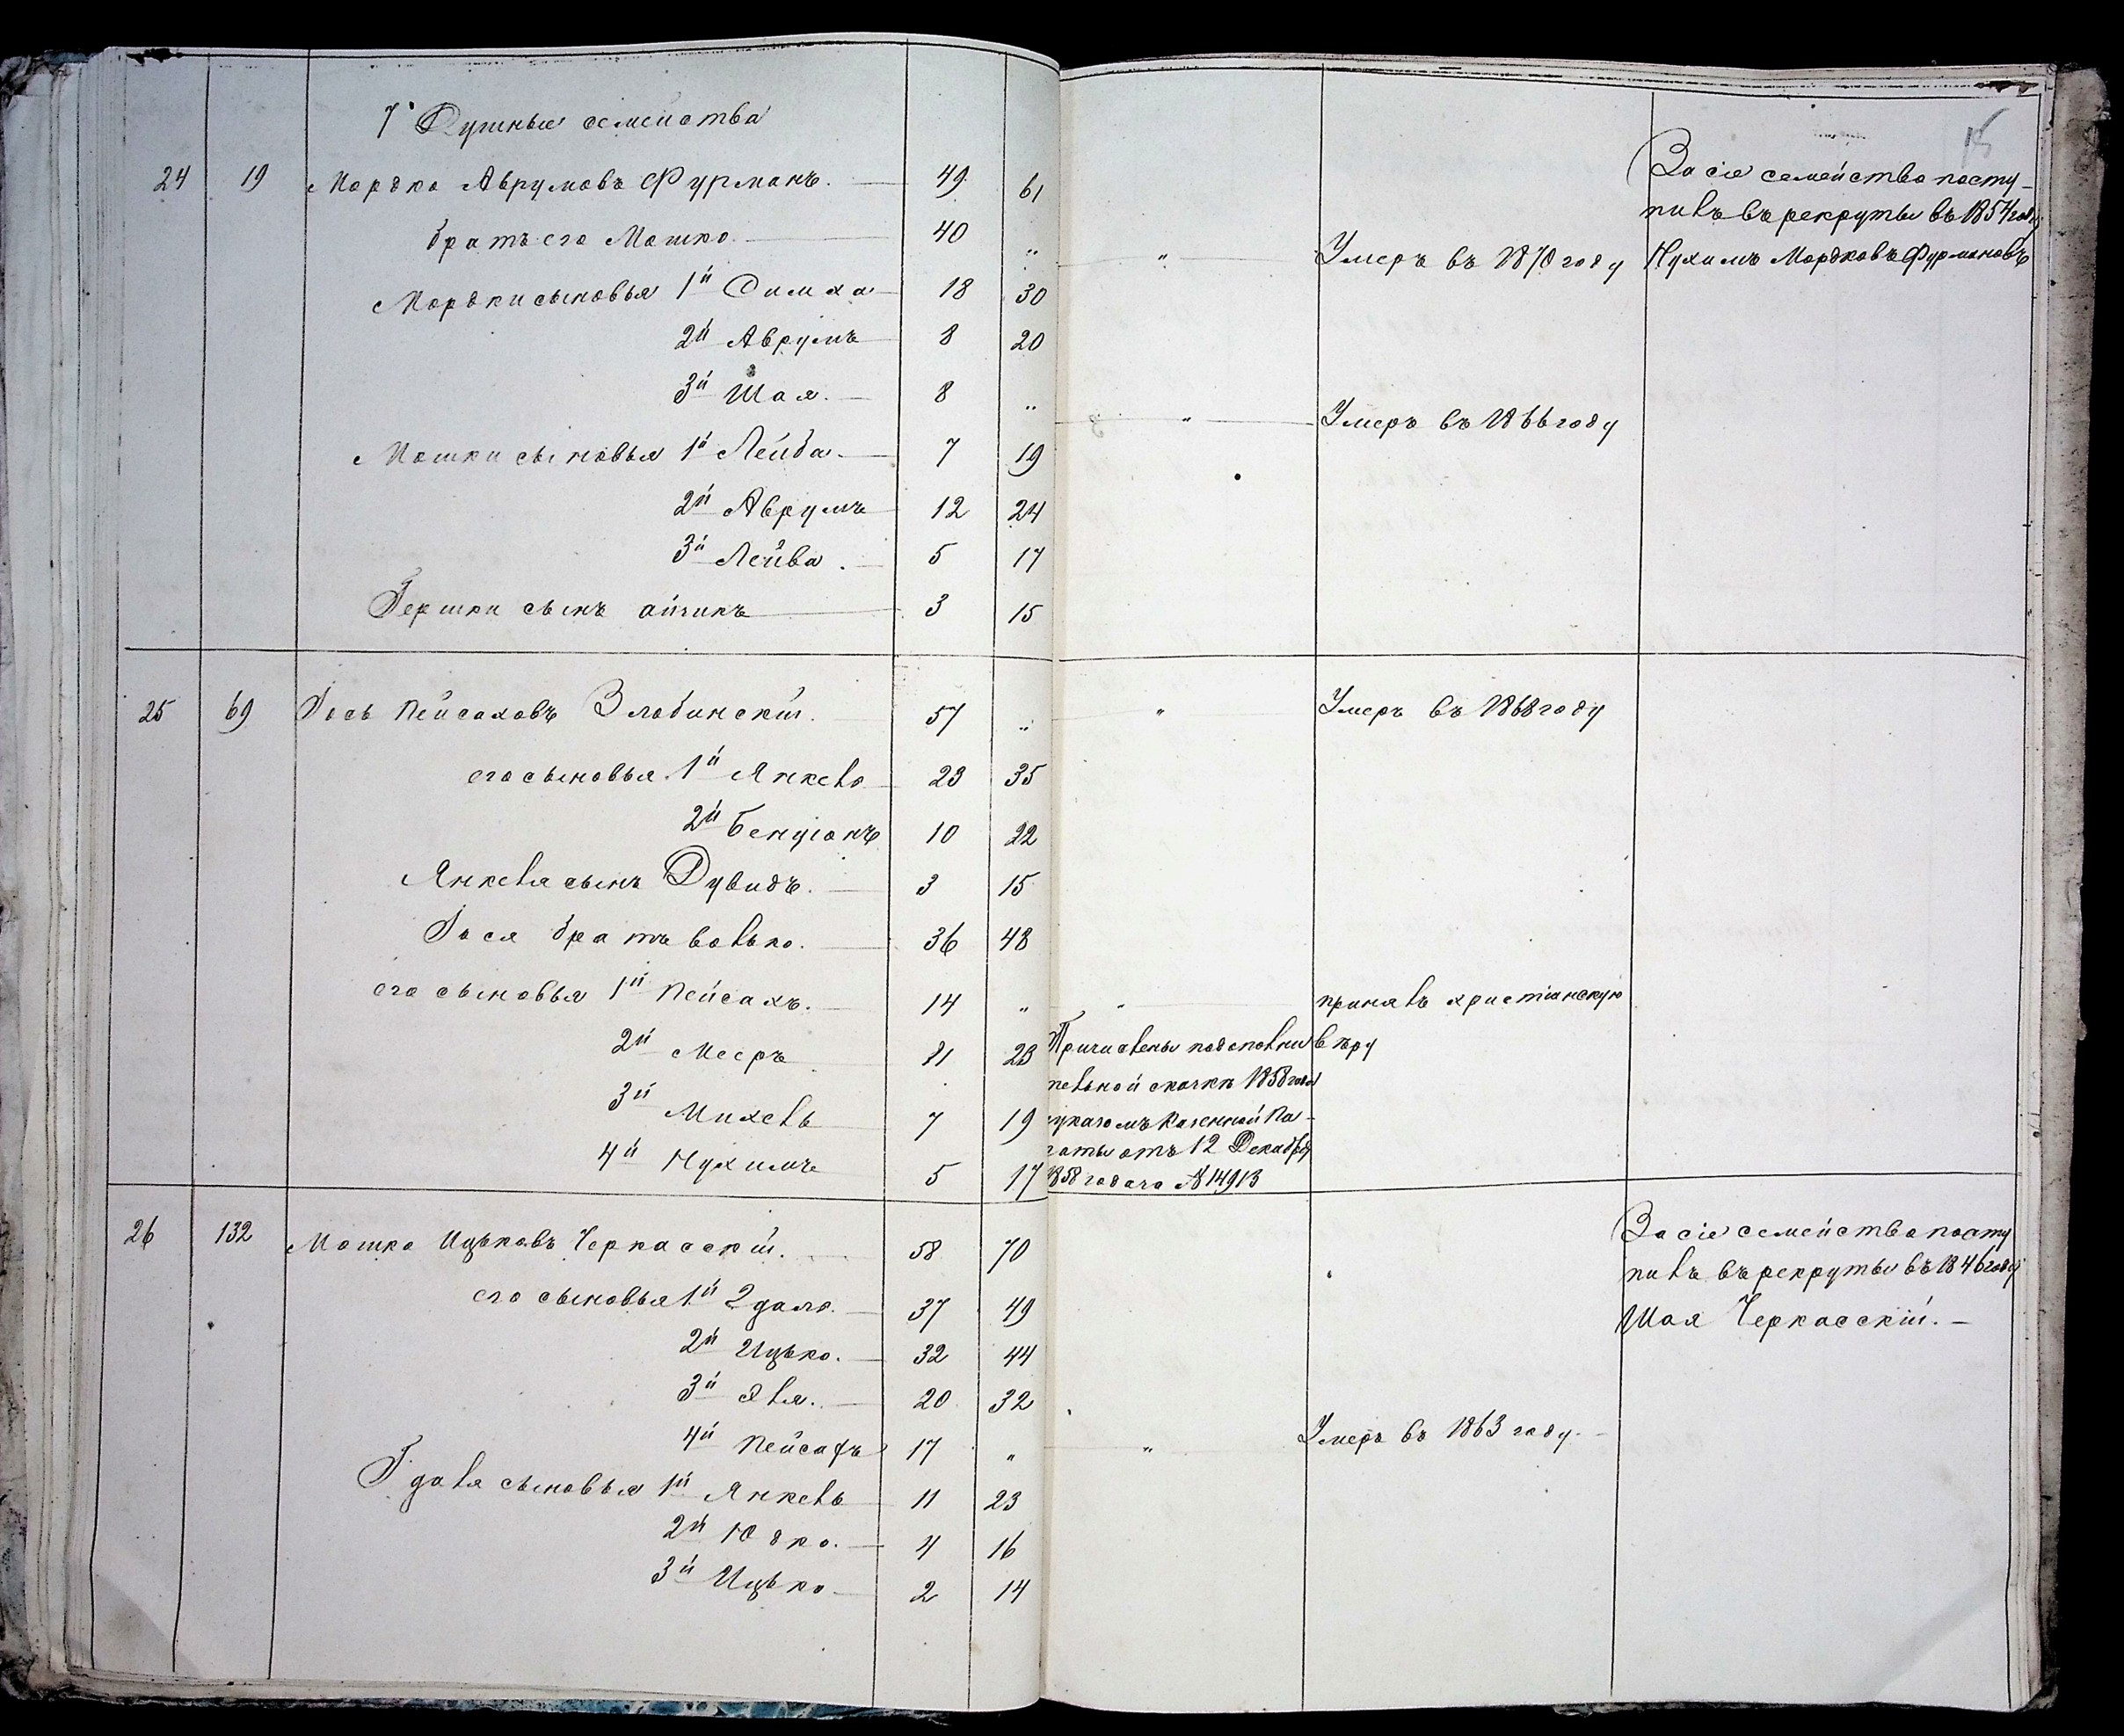 15
7 Душныя семейства
24 19 Мордко Аврумовъ Фурманъ. 49 61
За сіе семейство посту-
пилъ въ рекруты въ 1854 году
Нухимъ Мордковъ Фурмановъ
братъ его Мошко. 40 „ „ Умеръ въ 1870 году
Мордки сыновья 1й Симха 18 30
2й Аврумъ 8 20
3й Шая. 8 „ „ Умеръ въ 1866 году
Мошки сыновья 1й Лейба. 7 19
2й Аврумъ 12 24
3й Лейва. 5 17
Гершки сынъ айзикъ 3 15
25 69 Іось Пейсаховъ Злобинскій. 57 „ „ Умеръ въ 1868 году
его сыновья 1й Янкель 23 35
2й Бенціонъ 10 22
Янкеля сынъ Дувидъ. 3 15
Іося братъ волько. 36 48
его сыновья 1й Пейсахъ. 14 „ „ принялъ христіанскую
вѣру
2й Мееръ 11 23
3й Михель 7 19
4й Нухимъ 5 17
Причислены подополни
тельной сказкѣ 1858 года
указомъ Казенной Па-
латы отъ 12 Декабря
1858 года за № 14913
26 132 Мошко Ицьковъ Черкасскій. 58 70
За сіе семейство посту
пилъ въ рекруты въ 1846 году
Шая Черкасскій. -
его сыновья 1й Гдаль. 37 49
2й Ицько. 32 44
3й Эля. 20 32
4й Пейсахъ 17 „ „ Умеръ въ 1863 году.
Гдаля сыновья 1й Янкель 11 23
2й Юдко. 4 16
3й Ицько 2 14